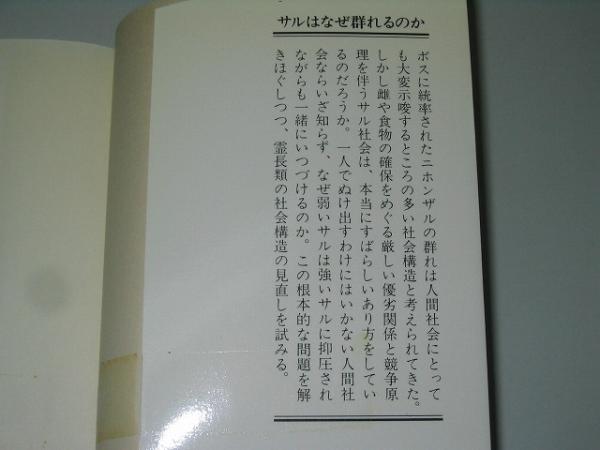 サルはなぜ群れるのか
ボスに統率されたニホンザルの群れは人間社会にとって
も大変示唆するところの多い社会構造と考えられてきた。
しかし雌や食物の確保をめぐる厳しい優劣関係と競争原
理を伴うサル社会は、本当にすばらしいあり方をしてい
るのだろうか。一人でぬけ出すわけにはいかない人間社
会ならいざ知らず、なぜ弱いサルは強いサルに抑圧され
ながらも一緒にいつづけるのか。この根本的な問題を解
きほぐしつつ、霊長類の社会構造の見直しを試みる。